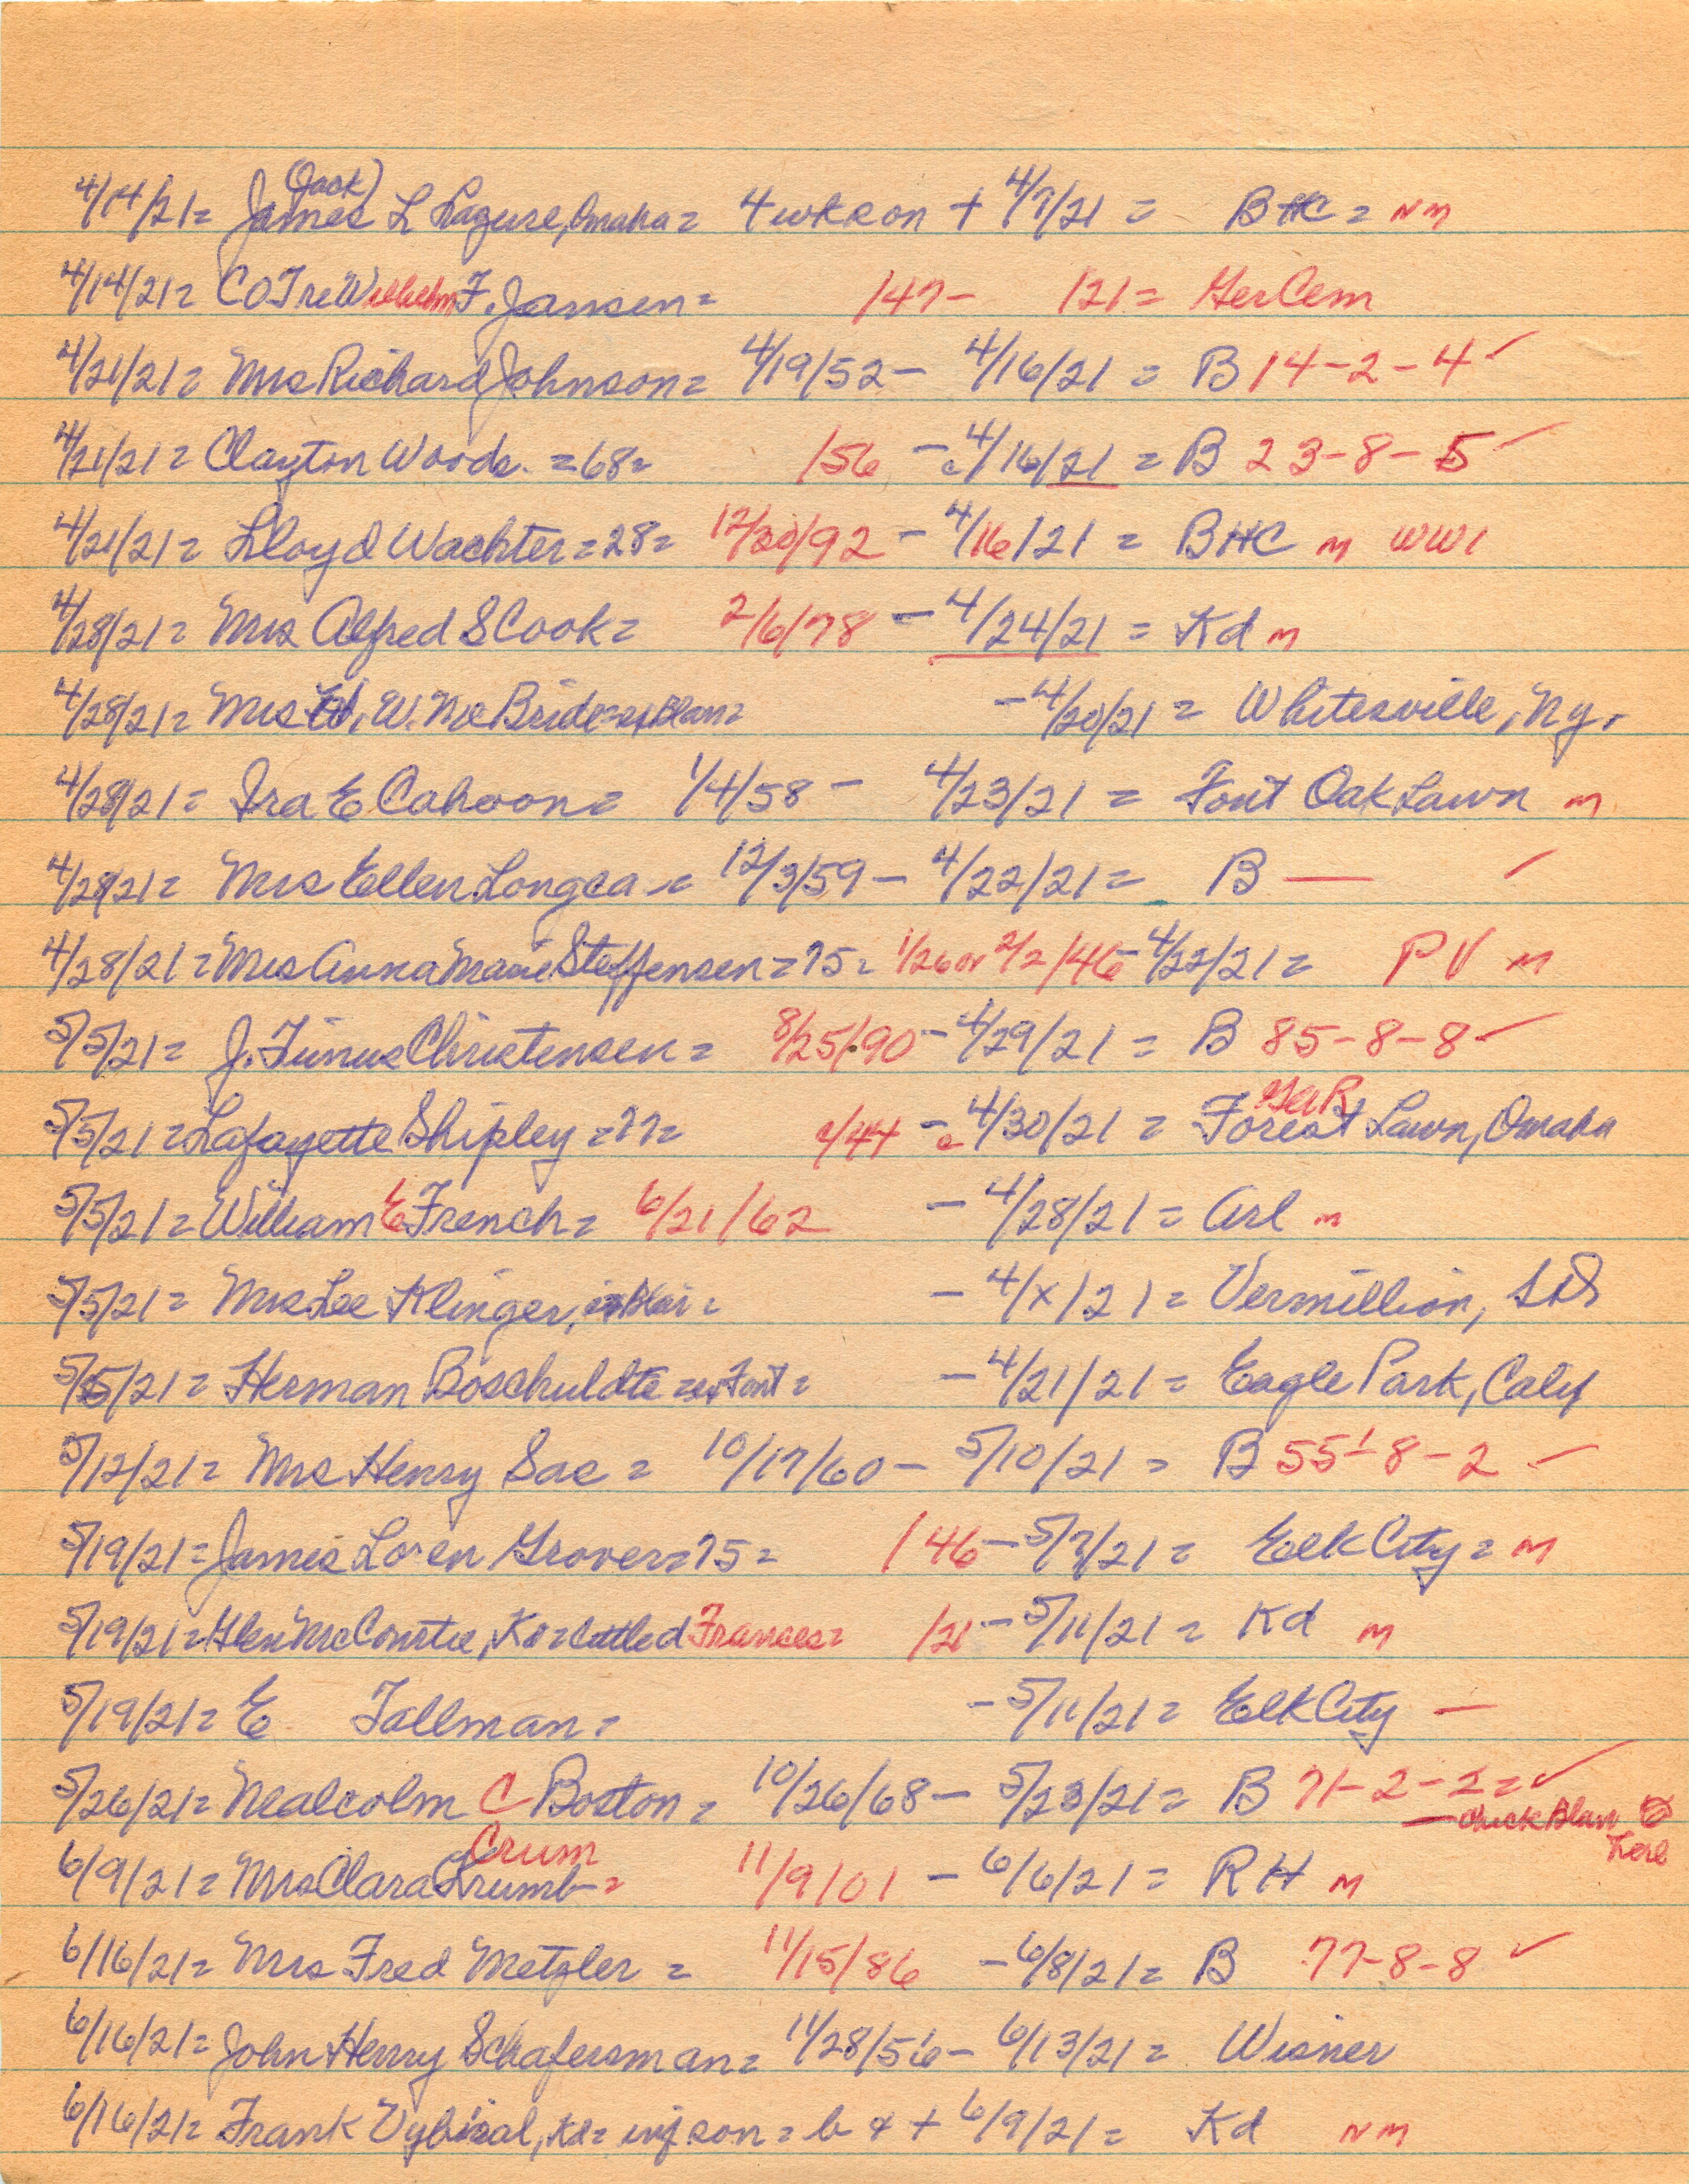 4/14/21= James (Jack) L Lazure, Omaha= 4 wk son + 4/7/21 = BHC = NM
4/14/21= CO Tre Wilhelm F. Jansen= /47- /21= Ger Cem
4/21/21= Mrs Richard Johnson= 4/19/52- 4/16/21 = B 14-2-4 ✓
4/21/21= Clayton Woods. =68= /56 - c4/16/21 = B 23-8-5 ✓
4/21/21= Lloyd Wachter=28= 12/30/92 - 4/16/21 = BHC M WW1
4/28/21= Mrs Alfred S Cook= 2/6/78 - 4/24/21 = Kd M
4/28/21= Mrs W. McBride= -4/20/21 = Whitesville, Ny.
4/28/21= Ira E Cahoon= 1/4/58 - 4/23/21 = Font Oak Lawn M
4/28/21= Mrs Ellen Longca = 12/3/59- 4/22/21= B — ✓
4/28/21=Mrs Anna Marie Steffensen=75= 1/26 or 2/2/46-4/22/21= PV M
5/5/21= J. Tinus Christensen= 8/25/90-4/29/21 = B 85-8-8 ✓
5/5/21=Lafayette Shipley=77= c/44 -c 4/30/21 = Forest Lawn, Omaha GAR
5/5/21=William E French= 6/21/62 - 4/28/21= Arl M
5/5/21= Mrs Lee Klinger, - 4/x/21= Vermillion, SD
5/5/21= Herman Boschuldte =ex Font= -4/21/21= Eagle Park, Calif
5/12/21= Mrs Henry Sas = 10/17/60- 5/10/21 = B 55-8-2 -
5/19/21=James Loren Grover=75= /46-5/7/21= Elk City= M
5/19/21=Glen McConstie, Kd= Frances= /21-5/11/21= Kd M
5/19/21= E Tallman= -5/11/21= Elk City —
5/26/21= Malcolm C Boston= 10/26/68- 5/23/21= B 71-2-2= ✓
— check Blair
6/9/21= Mrs Clara Krumb= Crum 11/9/01 - 6/6/21= RH M
6/16/21= Mrs Fred Metzler = 11/15/86 -6/8/21= B 77-8-8 ✓
6/16/21= John Henry Schafersman= 11/28/56- 6/13/21= Wisner
6/16/21= Frank Vybiral, Kd= inf son= b & + 6/9/21= Kd NM